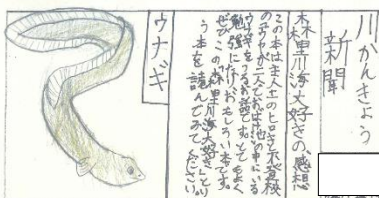 川かんきょう
新聞
森里川海大好きの感想
この本は主人公のヒロと不登校
のサヤが二人でおばけ池の中にいる
ウナギをつるお話です。とてもよく
勉強に行けおもしろい本です。
ぜひこの「森里川海大好き」とい
う本を読んでみてください。
ウナギ